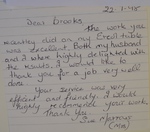 22-1-'15
Dear Brooks,
The work you
recently did on my Enroll-table
was excellent. Both my husband
and I where highly delighted with
the results. I would like to
thank you for a job very well
done.
Your service was very
efficient and friendly. I would
highly recommend your work.
Thank you
Sue
(Mrs)